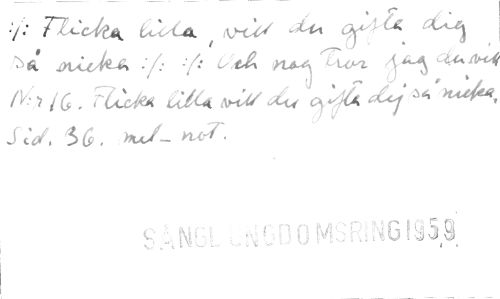 :/: Flicka lilla, vill du gifta dig
så nicka :/: :/: Och nog tror jag du vill
N:r 16. Flicka lilla vill du gifta dej så nicka.
Sid. 36. mel-not.
SÅNGL UNGDOMSRING 1959